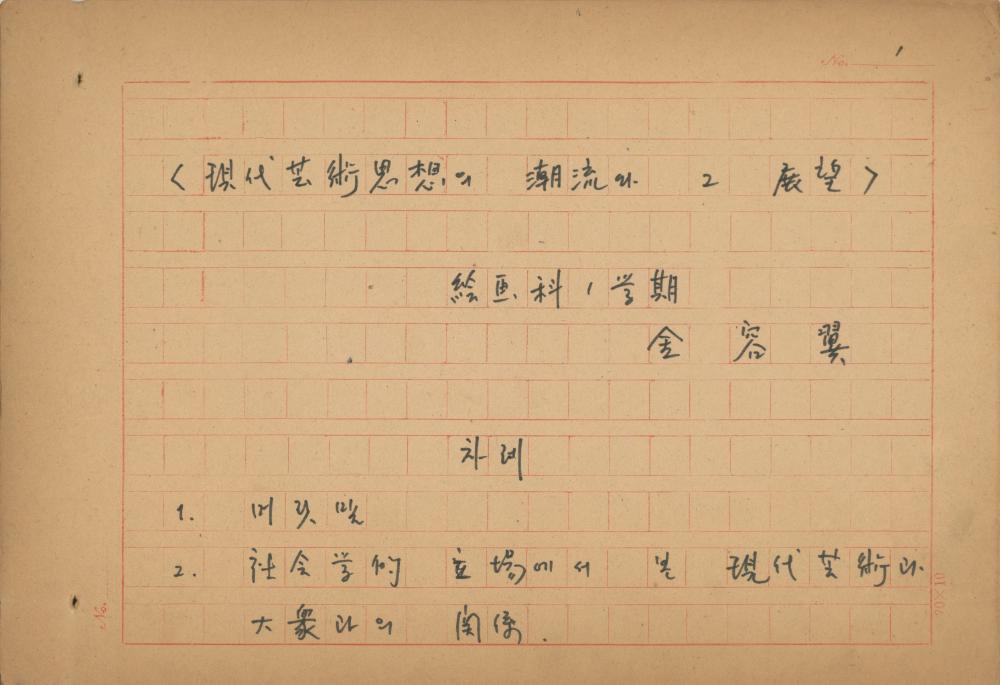 No. 1
〈現代芸術思想의 潮流와 그 展望〉
絵画科 1 学期
金容翼
차례
1. 머릿말
2. 社会学的 立場에서 본 現代芸術과
大衆과의 関係.
No.
20×10